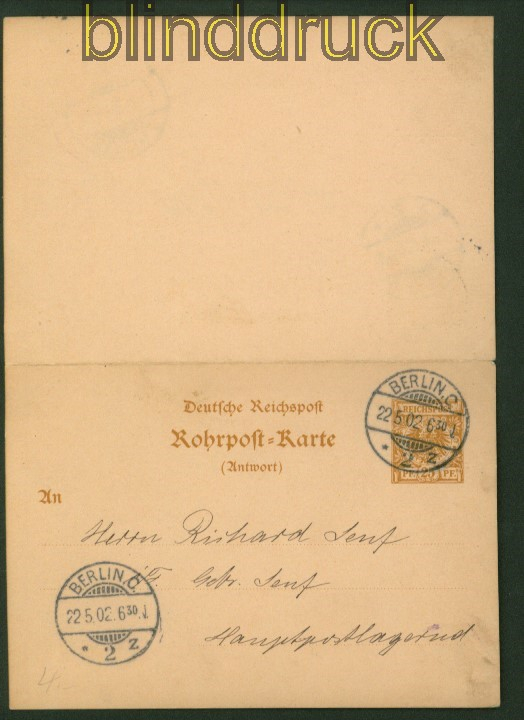 blinddruck
Deutsche Reichspost
Rohrpost-Karte
(Antwort)
An
BERLIN, C.
22.5.02. 6 30 N.
* 2 z
REICHSPOST
PF 25 PF
Herrn Richard Senf
Gebr. Senf
Hauptpostlagernd
BERLIN, C.
22.5.02. 6 30 N.
* 2 z